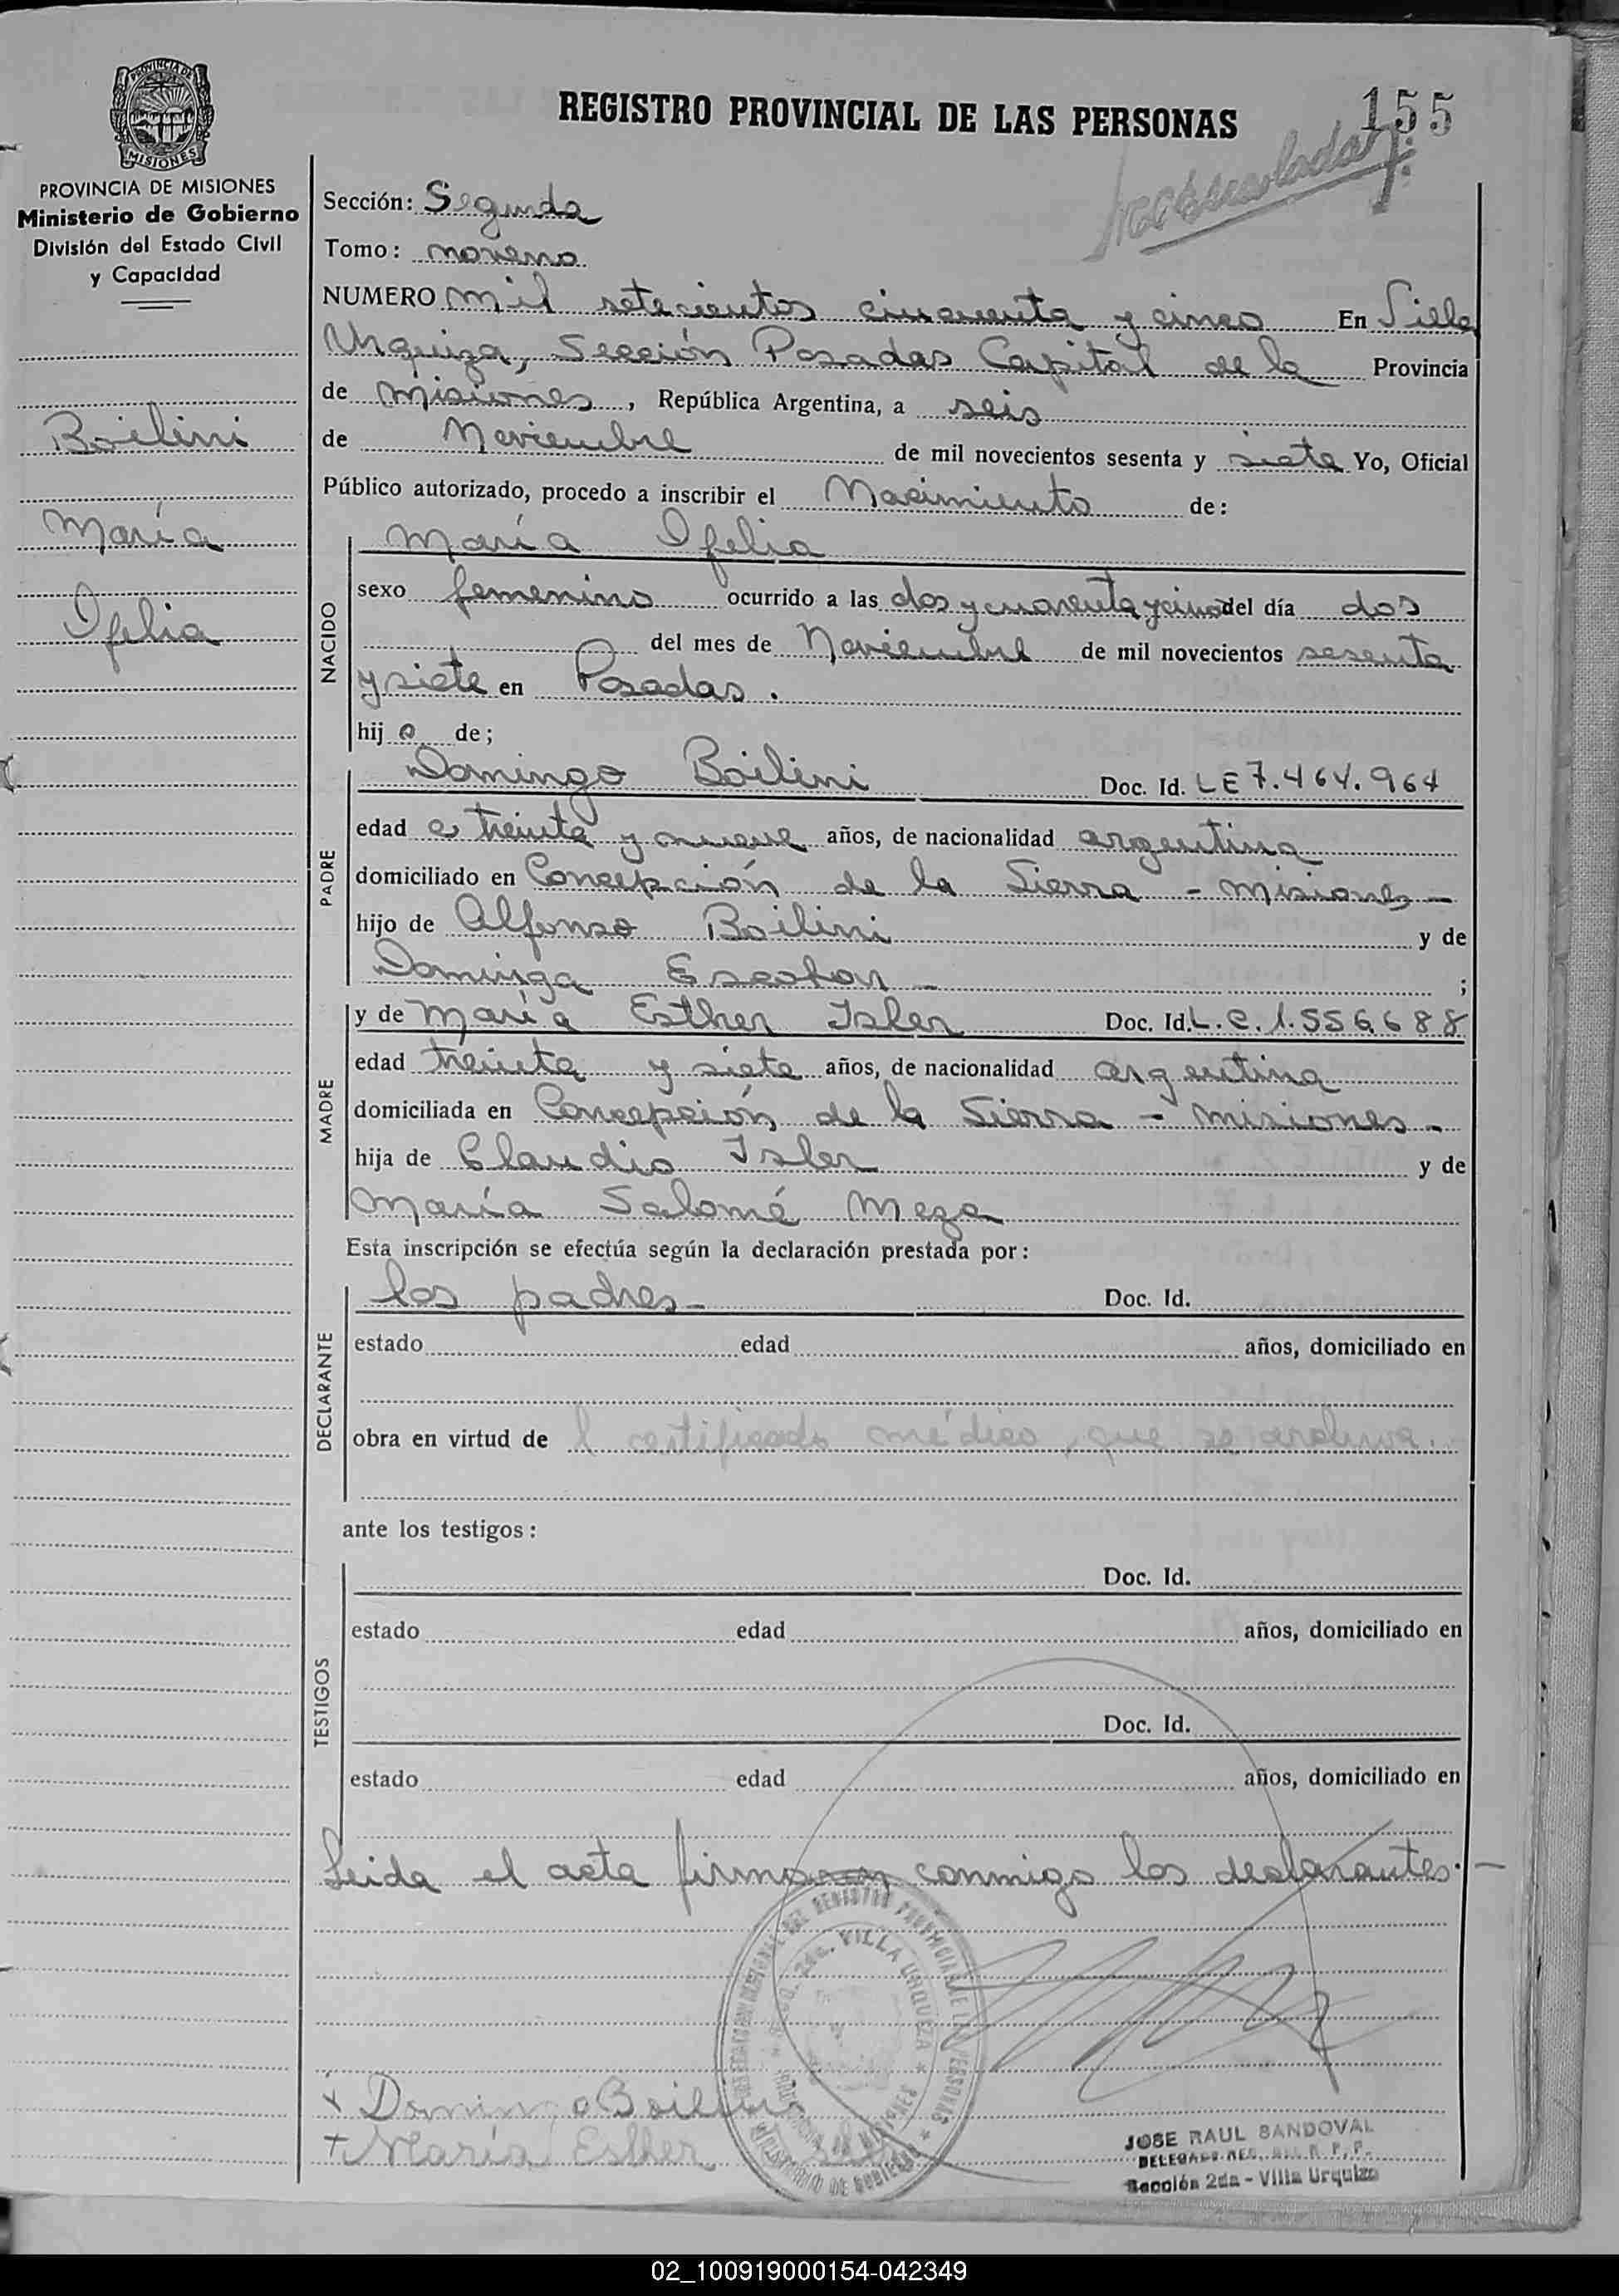 155
REGISTRO PROVINCIAL DE LAS PERSONAS
PROVINCIA DE MISIONES
Ministerio de Gobierno
División del Estado Civil
y Capacidad
Boilini
María
Ofelia
Sección: Segunda
Tomo: noveno
NUMERO mil setecientos cincuenta y cinco En Villa
Urquiza, Sección Posadas Capital de la Provincia
de Misiones, República Argentina, a seis
de Noviembre de mil novecientos sesenta y siete Yo, Oficial
Público autorizado, procedo a inscribir el Nacimiento de:
NACIDO
María Ofelia
sexo femenino ocurrido a las dos y cuarenta y cinco del día dos
del mes de Noviembre de mil novecientos sesenta
y siete en Posadas.
hij a de;
PADRE
Domingo Boilini Doc. Id. LE 7.464.964
edad treinta y nueve años, de nacionalidad argentina
domiciliado en Concepción de la Sierra - Misiones -
hijo de Alfonso Boilini y de
Dominga Escobar - ;
MADRE
y de María Esther Isler Doc. Id. L.C. 1.556.688
edad treinta y siete años, de nacionalidad argentina
domiciliada en Concepción de la Sierra - Misiones -
hija de Claudio Isler y de
María Salomé Meza
Esta inscripción se efectúa según la declaración prestada por:
DECLARANTE
los padres - Doc. Id.
estado edad años, domiciliado en
obra en virtud de l certificado médico, que se archiva.
ante los testigos:
TESTIGOS
Doc. Id.
estado edad años, domiciliado en
Doc. Id.
estado edad años, domiciliado en
Leida el acta firman conmigo los declarantes. -
VILLA URQUIZA
MINISTERIO DE GOBIERNO
+ Domingo Boilini
+ María Esther
JOSE RAUL SANDOVAL
DELEGADO REG.
Sección 2da - Villa Urquiza
02_100919000154-042349